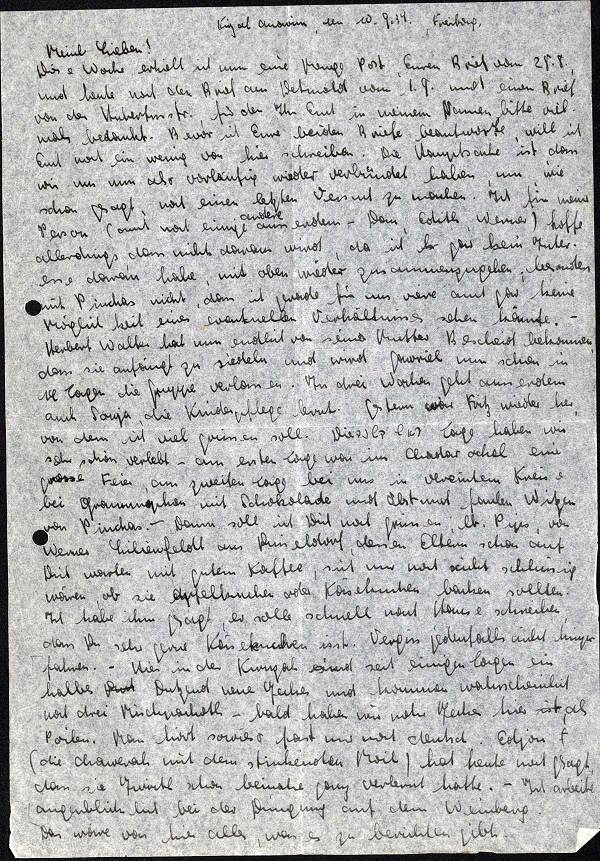 Kirjat Anawim, den 10.9.34, Freitag.
Meine Lieben!
Diese Woche erhielt ich nun eine Menge Post, Euren Brief vom 25.8.,
und heute noch den Brief aus Detmold vom 1.9. und einen Brief
von der, für den Ihr Euch in meinem Namen bitte viel
mals bedankt. Bevor ich Eure beiden Briefe beantworte, will ich
Euch noch ein wenig von hier schreiben. Die Hauptsache ist dass
wir uns nun also vorläufig wieder verbündet haben, um, wie
schon gesagt, noch einen letzten Versuch zu machen. Ich für meine
Person (auch noch einige andere ausserdem - Dan, Edith, Werner) hoffe
allerdings dass nichts daraus wird, da ich gar kein Inter-
esse daran habe, mit oben wieder zusammenzugehen, besonders
mit Pinchas nicht, dass ich gerade für uns zwei auch gar keine
Möglichkeit eines eventuellen Verhältnisses sehen könnte. -
Herbert Walter hat nun endlich von seiner Mutter Bescheid bekommen,
dass sie anfängt zu siedeln und wird nun schon in
14 Tagen die Gruppe verlassen. In drei Wochen geht ausserdem
auch Sonja, die Kinderpflege lernt. Gestern war Fritz wieder hier,
von dem ich viel grüssen soll. Diese Tage haben wir
sehr schön verlebt - am ersten Tage war im Chadar ochel eine
grosse Feier am zweiten Tage bei uns in vereintem Kreise
bei Grammophon mit Schokolade und Obst und faulen Witzen
von Pinchas. - Dann soll ich Dich noch grüssen, von
Werner Lilienfeldt aus Düsseldorf, dessen Eltern schon auf
Dich warten mit gutem Kaffee, sich nur noch nicht schlüssig
wären ob sie Apfelkuchen oder Käsekuchen backen sollten.
Ich habe ihm gesagt, er solle schnell nach Hause schreiben
dass Du sehr gerne Käsekuchen isst. Vergiss jedenfalls nicht hinzu-
fahren. - Hier in der Kwuzah sind seit einigen Tagen ein
halbes Dutzend neue Jeckes und kommen wahrscheinlich
noch drei Mischpachoth - bald haben wir mehr Jeckes hier als
Polen. Man hört sowieso fast nur noch deutsch.
(die chawerah mit dem stinkenden) hat heute noch gesagt,
dass sie Iwrith schon beinahe ganz verlernt hätte. - Ich arbeite
augenblicklich bei der Düngung auf dem Weinberg.
Das wäre von hier alles, was es zu berichten gibt. -